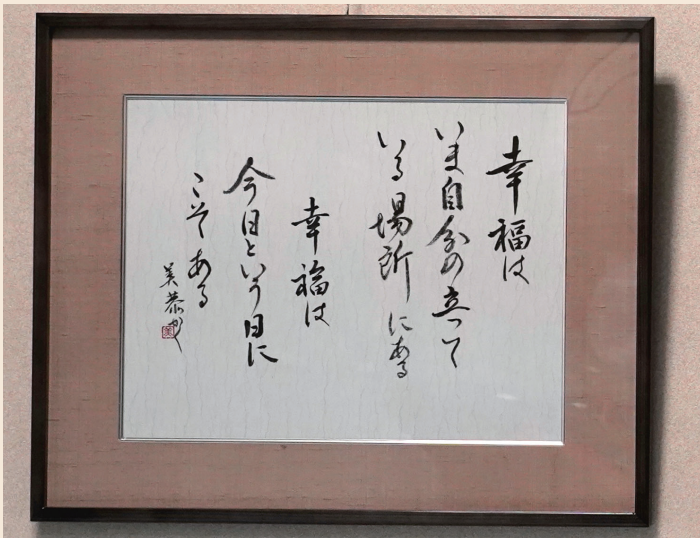 幸福は
いま自分の立って
いる場所にある
幸福は
今日という日に
こそある
美恭かく